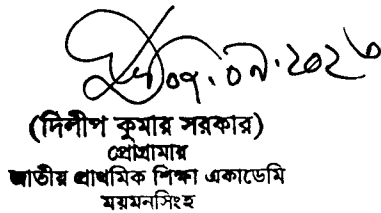 ০৭.০৭.২০২৩
(দিলীপ কুমার সরকার)
প্রোগ্রামার
জাতীয় প্রাথমিক শিক্ষা একাডেমি
ময়মনসিংহ